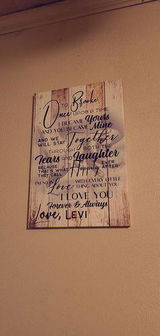 TO Brooke
Once UPON A TIME
I BECAME Yours
AND YOU BECAME Mine
AND WE WILL STAY Together
THROUGH BOTH THE
Tears AND Laughter
BECAUSE THAT'S WHAT THEY CALL Happily EVER AFTER
Love WITH EVERY LITTLE THING ABOUT YOU
I LOVE YOU
Forever & Always
Love, LEVI